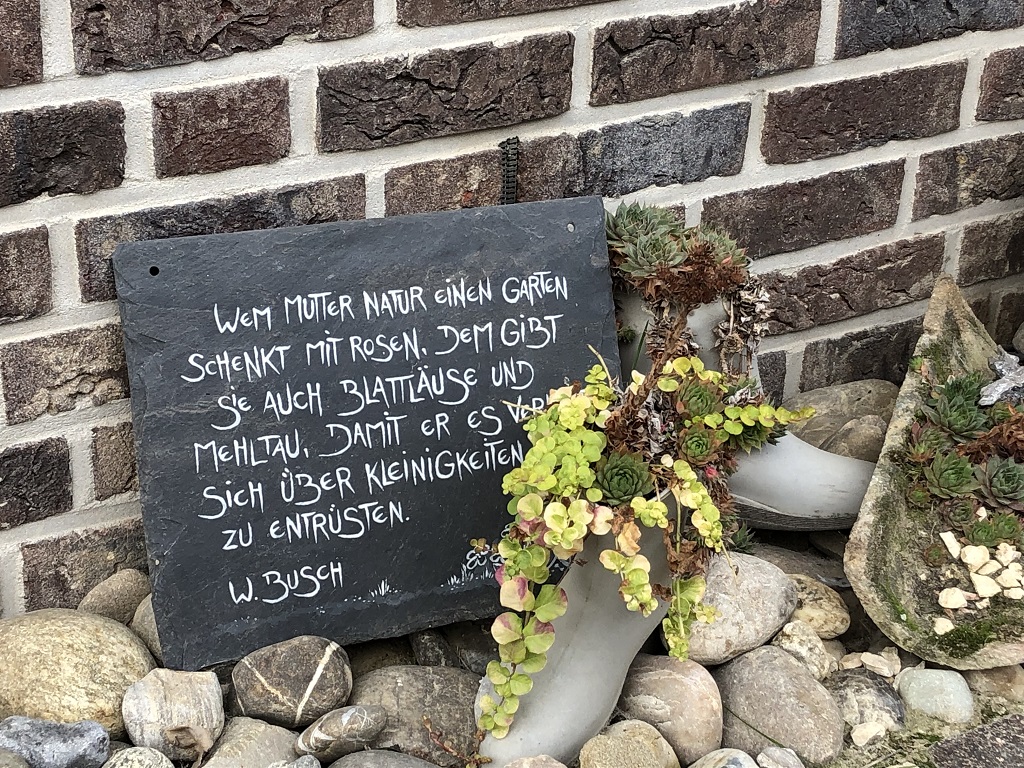 WEM MUTTER NATUR EINEN GARTEN
SCHENKT MIT ROSEN, DEM GIBT
SIE AUCH BLATTLÄUSE UND
MEHLTAU, DAMIT ER ES
SICH ÜBER KLEINIGKEITEN
ZU ENTRÜSTEN.
W. BUSCH